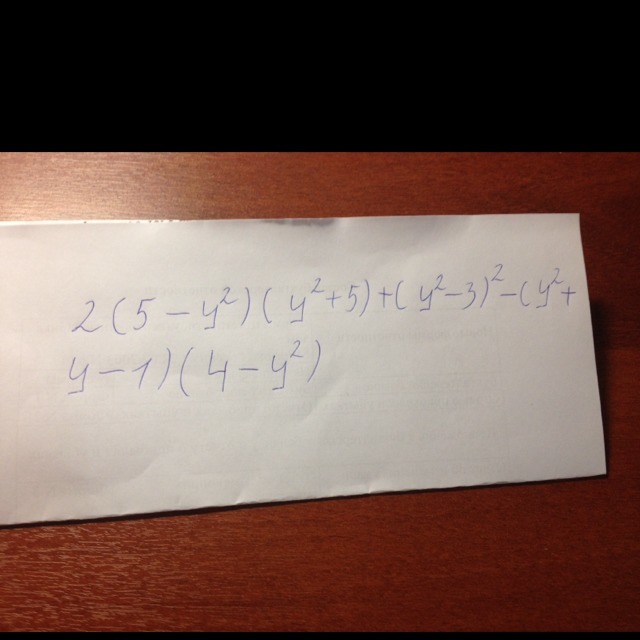 2(5-y²)(y²+5)+(y²-3)²-(y²+
y-1)(4-y²)